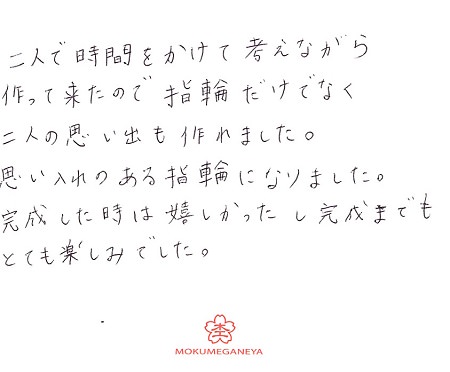 二人で時間をかけて考えながら
作って来たので指輪だけでなく
二人の思い出も作れました。
思い入れのある指輪になりました。
完成した時は嬉しかったし完成までも
とても楽しみでした。
杢
MOKUMEGANEYA